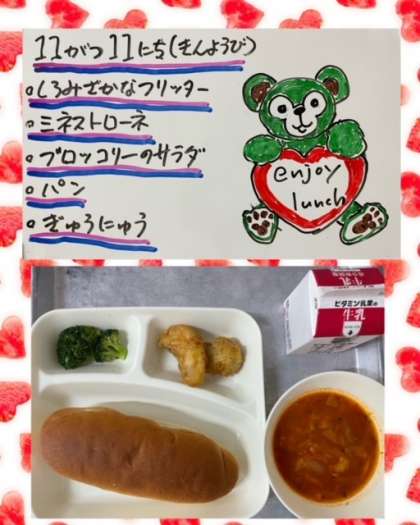 11がつ11にち(きんようび)
○しろみざかなフリッター
○ミネストローネ
○ブロッコリーのサラダ
○パン
○ぎゅうにゅう
enjoy
lunch
牛乳
ビタミン乳業の
牛乳